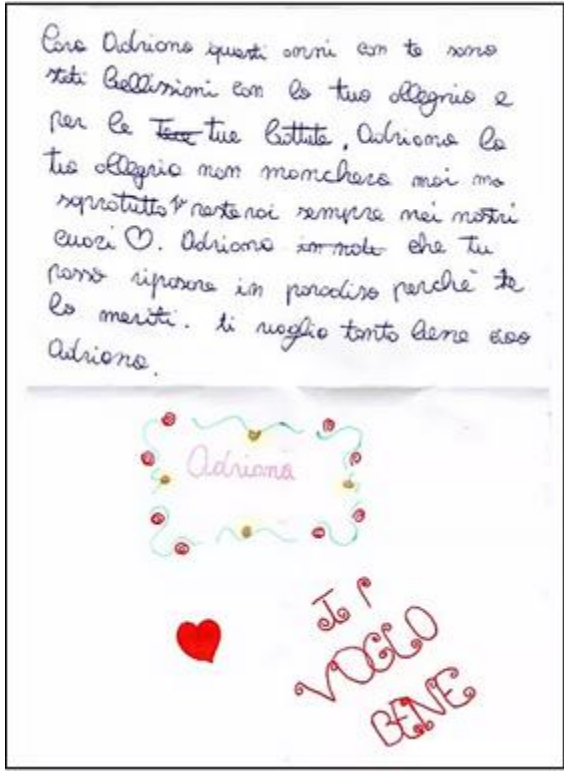 Cara Adriana questi anni con te sono
stati bellissimi con la tua allegria e
per le tue battute, Adriana la
tua allegria non mancherà mai ma
soprattutto resterai sempre nei nostri
cuori ♡. Adriana che tu
possa riposare in paradiso perchè te
lo meriti. ti voglio tanto bene ciao
Adriana.
Adriana
Ti
VOGLO
BENE